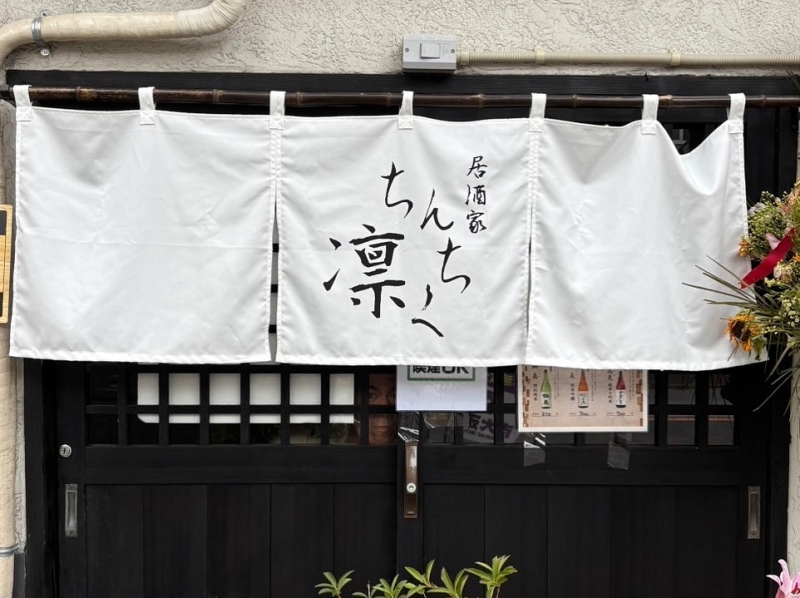 居酒家
ちんちく
凛
喫煙OK